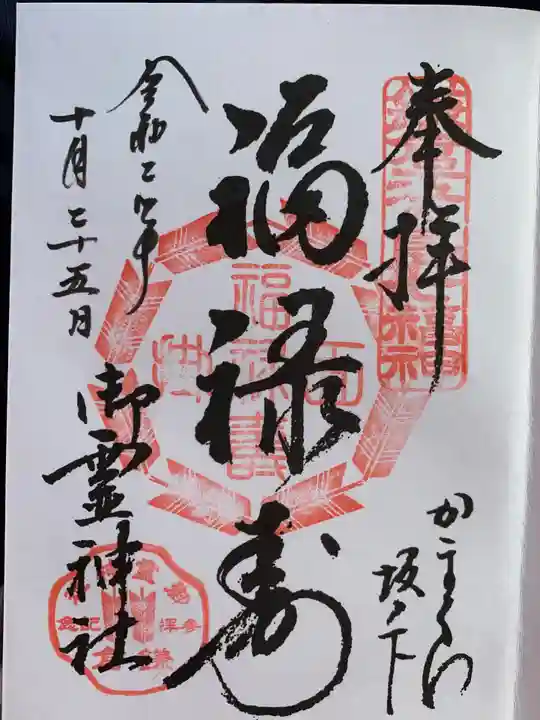 奉拝
かまくら
坂ノ下
福禄寿
福禄寿
面掛
令和二年
十月二十五日
御霊神社